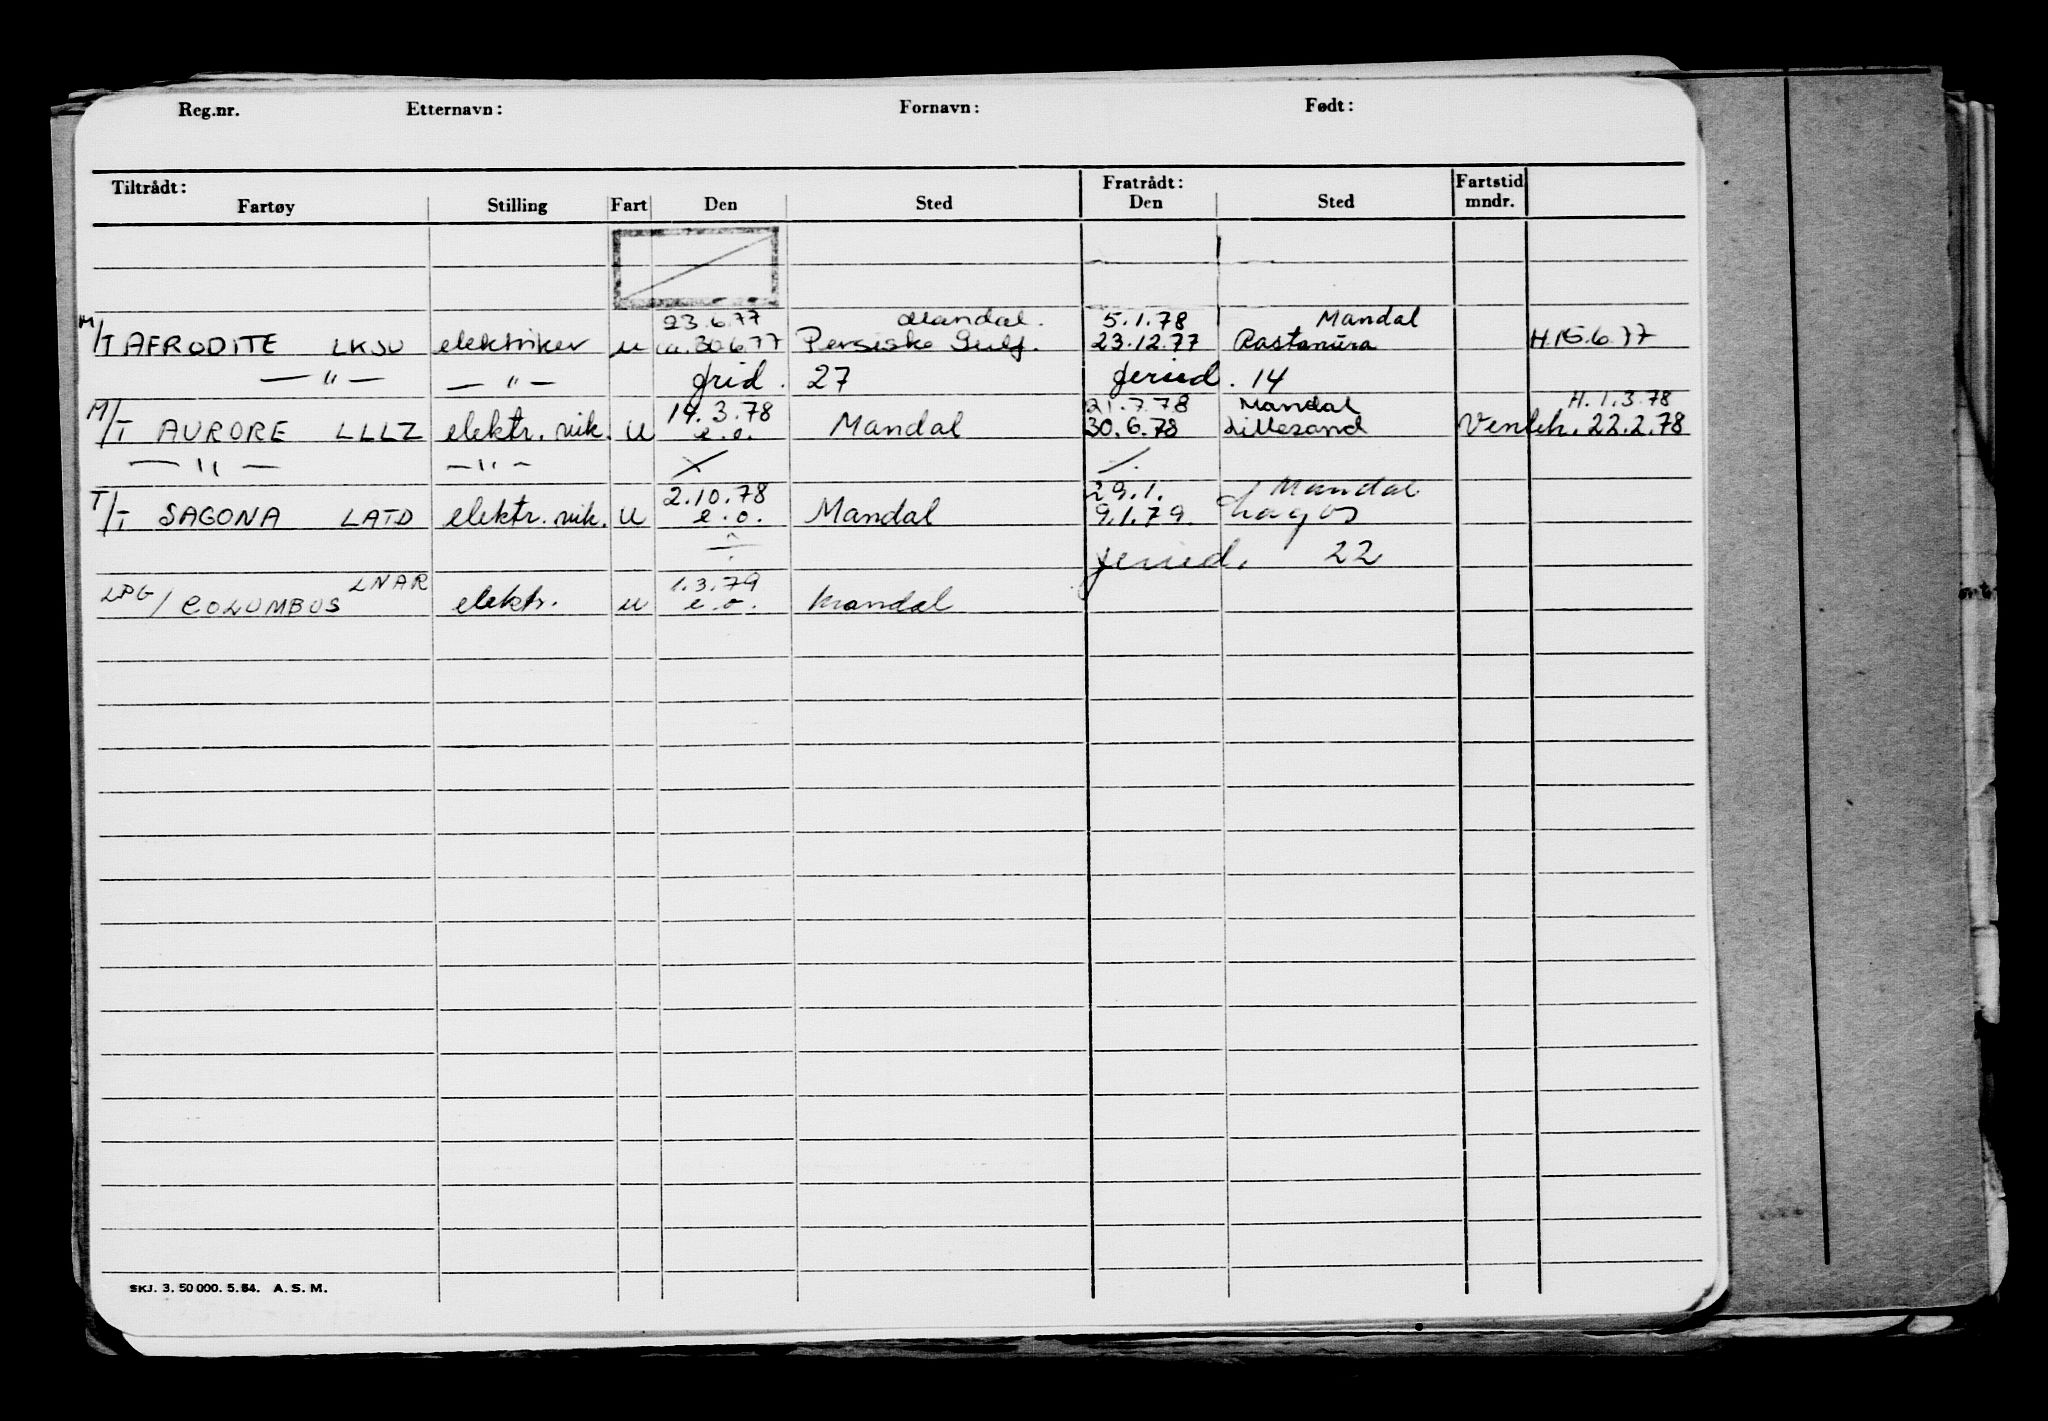 Reg.nr. Etternavn: Fornavn: Født:
Tiltrådt: Fratrådt: Fartstid
Fartøy Stilling Fart Den Sted Den Sted mndr.
23.6.77 Mandal. 5.1.78 Mandal
M/T AFRODITE LKSU elektriker u ca. 30.6.77 Persiske Gulf. 23.12.77 Rastanura H.15.6.77
— " — — " — frid. 27 feried. 14
14.3.78 21.7.78 Mandal H. 1.3.78
M/T AURORE LLLZ elektr. vik. U e.o. Mandal 30.6.78 Lillesand Venteh. 22.2.78
— " — — " —
2.10.78 29.1. Mandal
T/T SAGONA LATD elektr. vik. U e.o. Mandal 9.1.79. Lagos
feried. 22
LNAR 1.3.79
LPG/ COLUMBUS elektr. u e.o. Mandal
SKJ. 3. 50 000. 5. 64. A. S. M.